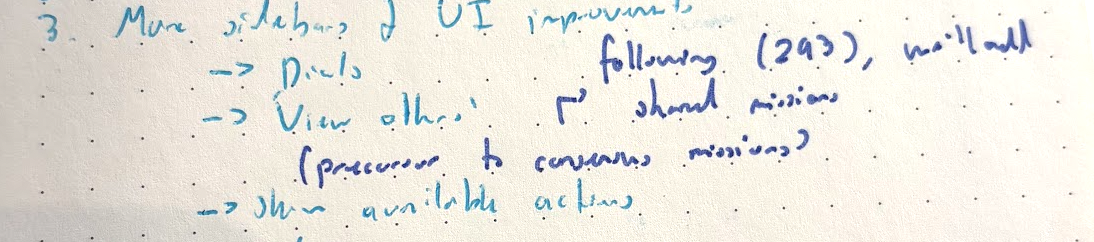 3. More sidebars & UI improvements
-> Dials
following (293), we'll add
-> View others'
shared missions
(precursor to consensus missions?)
-> Show available actions